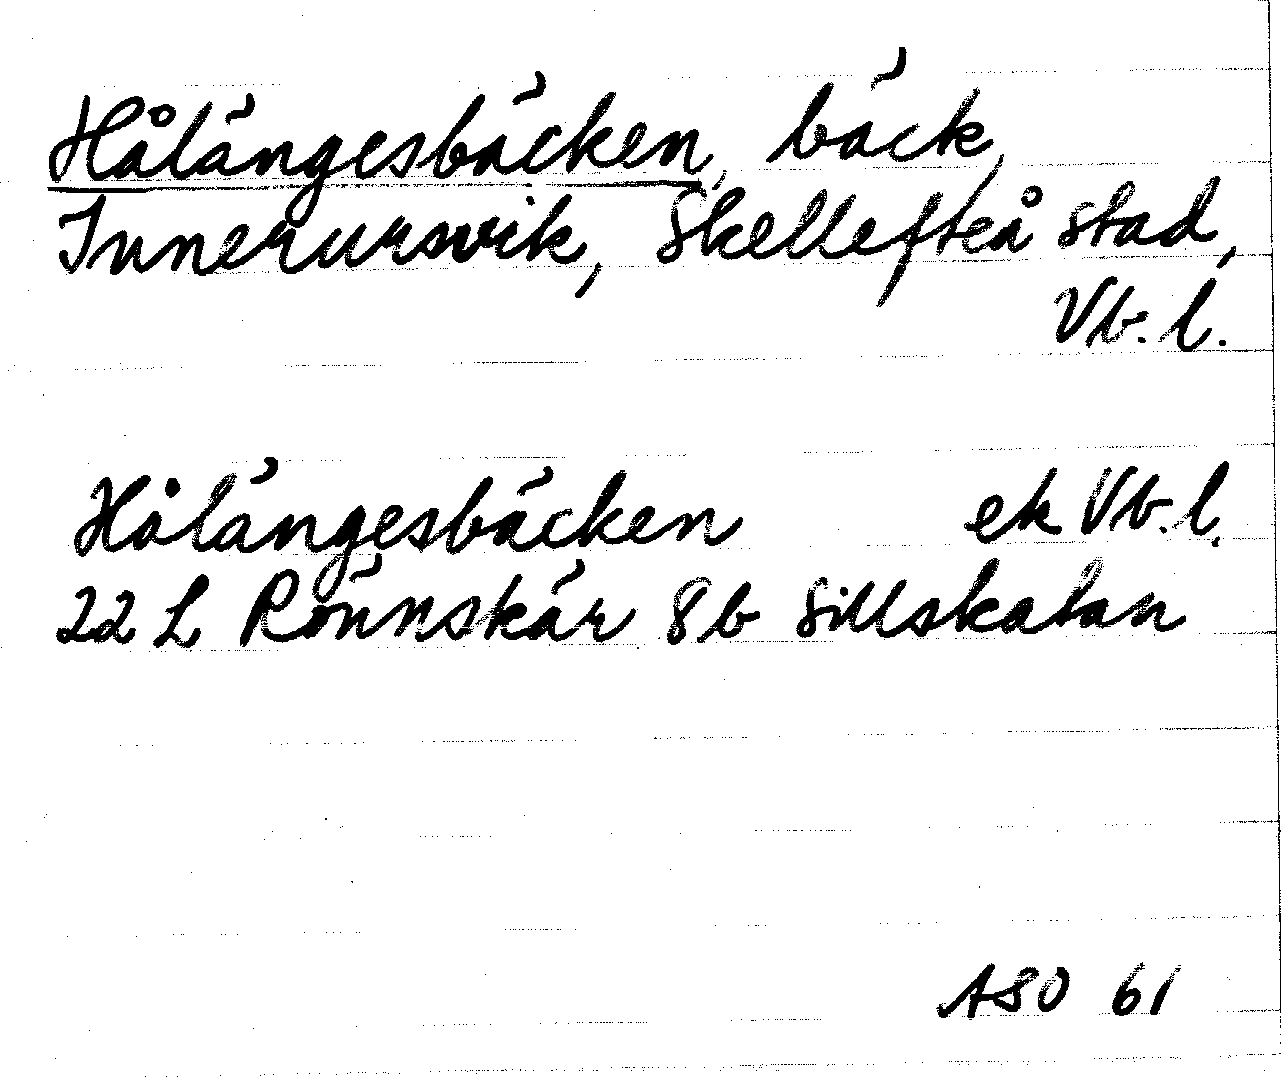 Hålängesbäcken, bäck,
Innerursvik, Skellefteå stad,
Vb. l.
Hålängesbäcken ek Vb. l.
22 L Rönnskär 8b Sillskatan
ASO 61